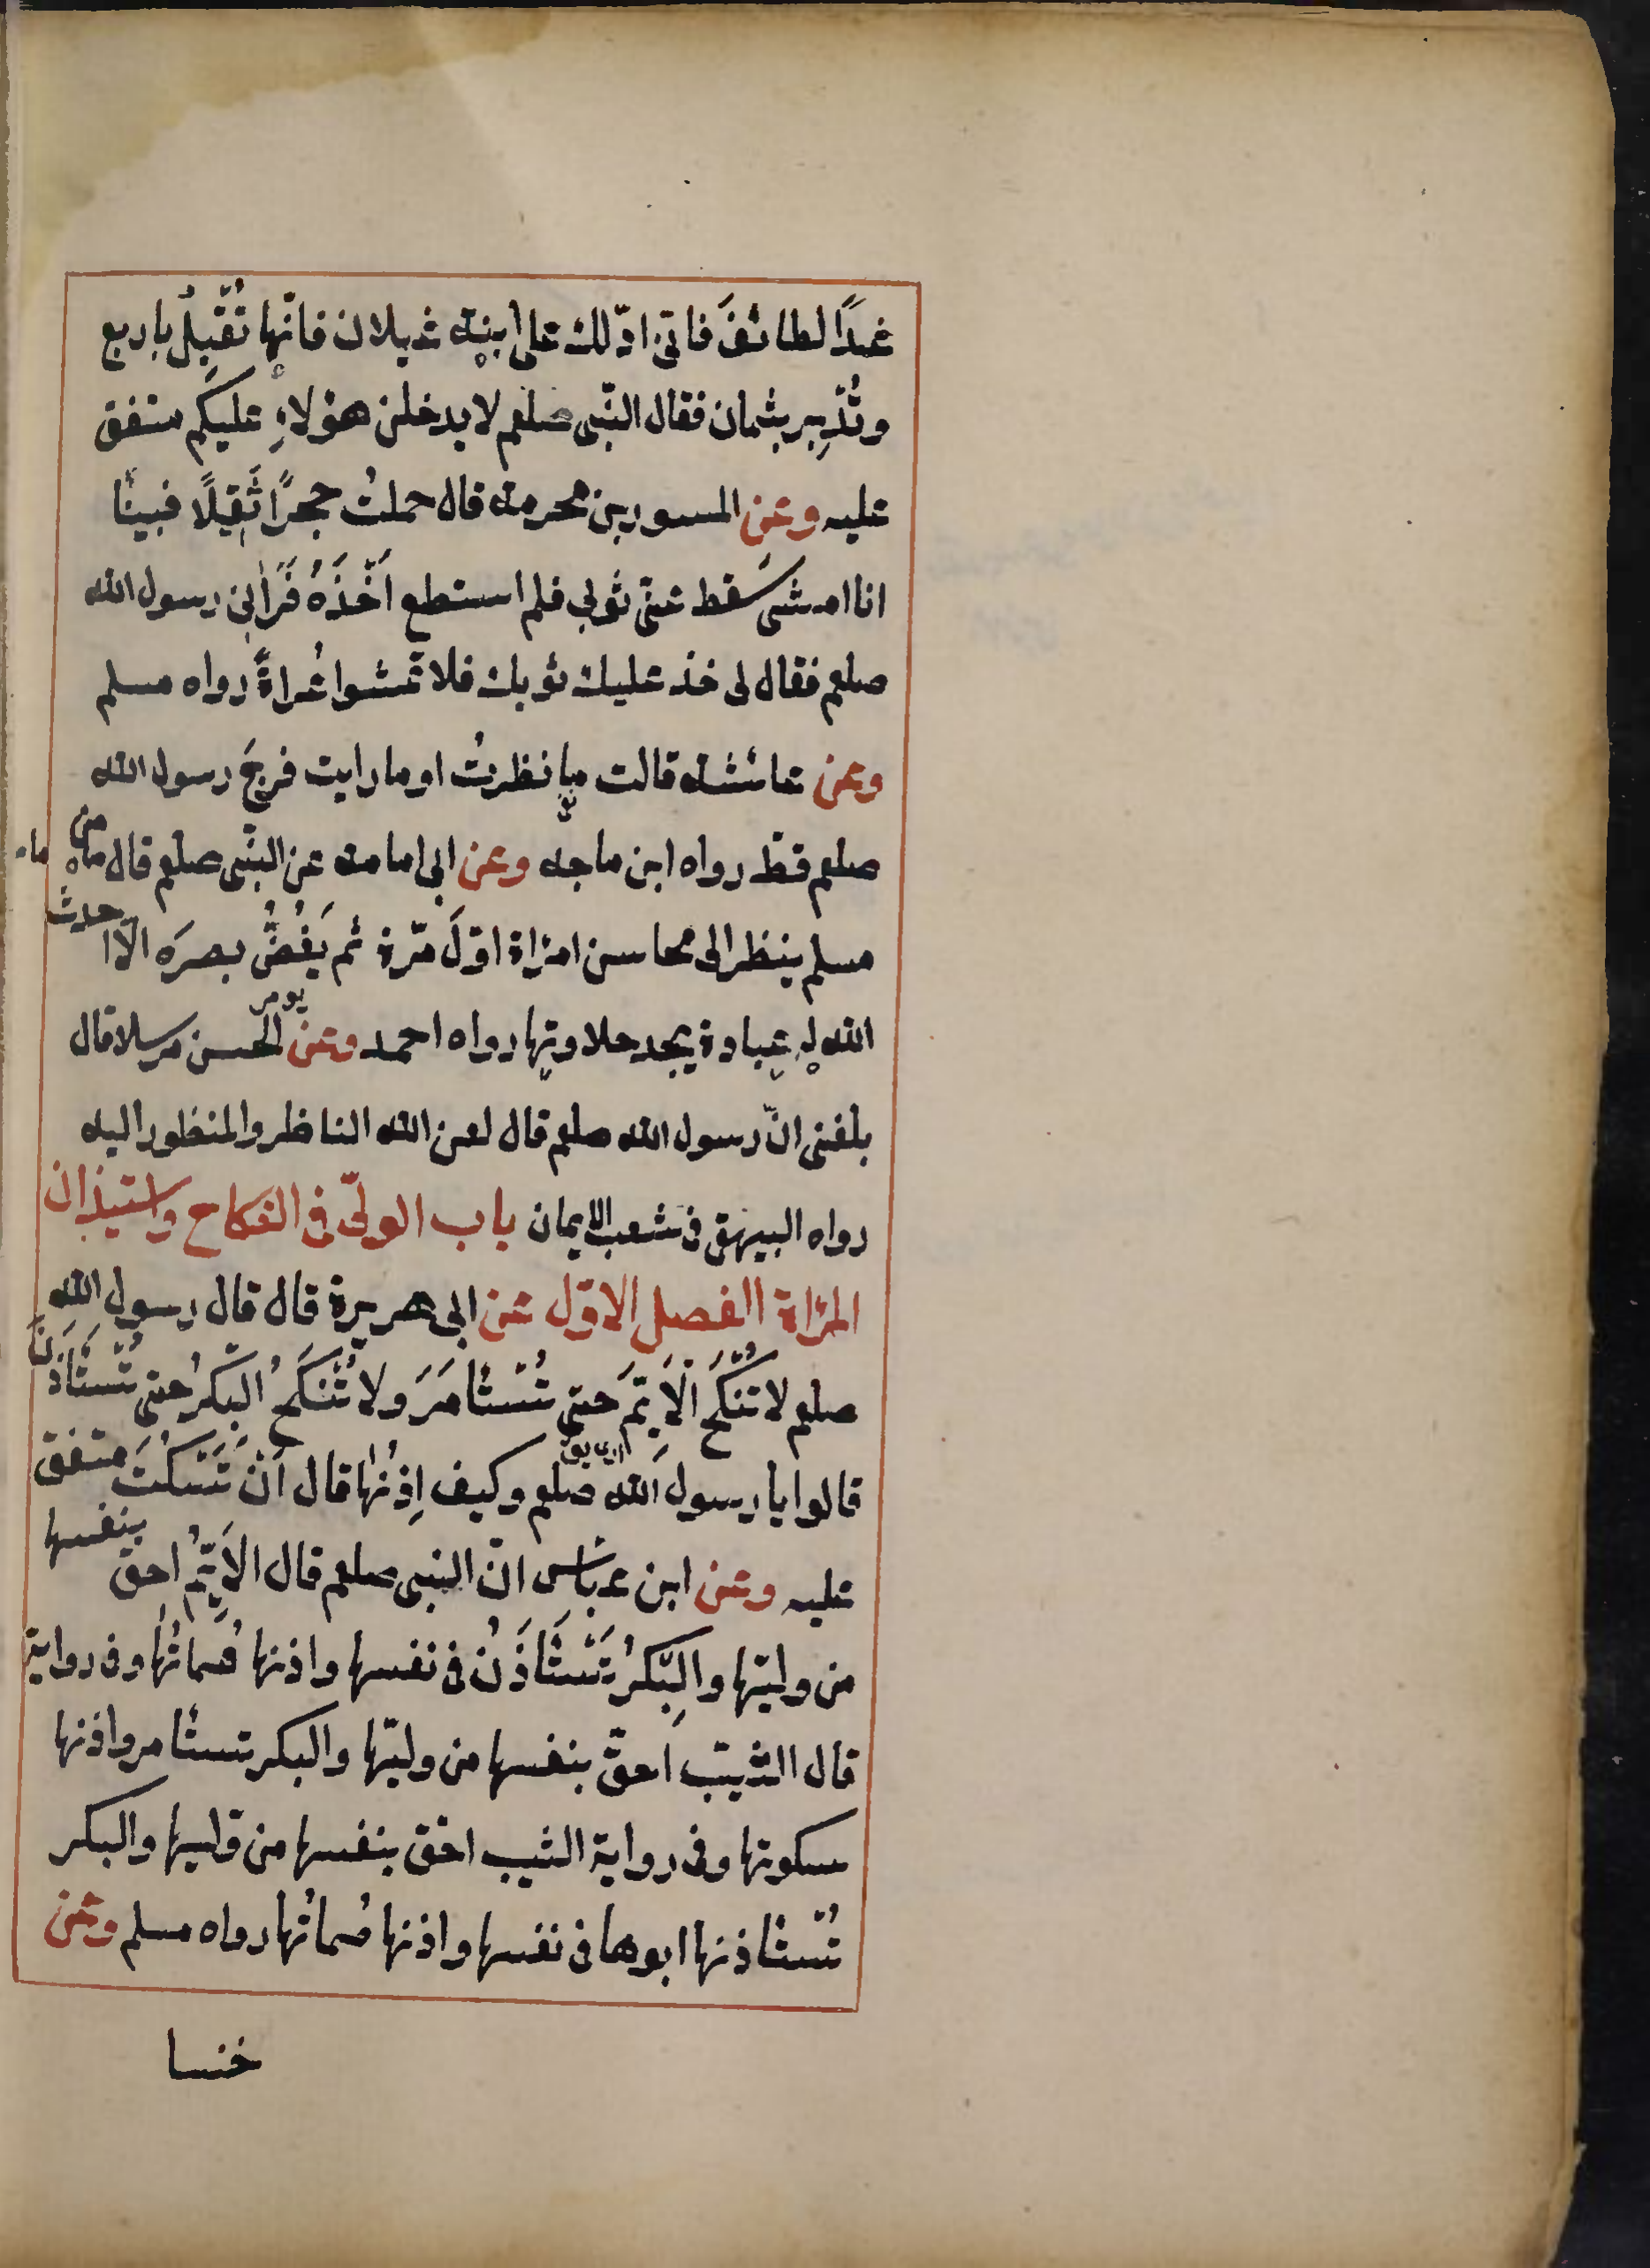 غدًا لطائفَ فانى ادّلك على ابنة غيلان فانّها تُقبِلُ باربع
وتُدبِر بثمان فقال النّبى صلعم لا يدخلن هؤلاءِ عليكم متفق
عليه وعن المسور بن محرمة قال حملتُ حجرًا ثَقِيلًا فبينَا
انا امشى سَقط عنّى ثوبى فلم استطع اَخْذَهُ فَرَاٰنِى رسول الله
صلعم فقال لى خذ عليك ثوبك فلا تمشوا عُراةً رواه مسلم
وعن عائشة قالت ما نظرتُ او ما رايت فرجَ رسول الله
صلعم قط رواه ابن ماجه وعن ابى امامة عن النبّى صلعم قال ما من
مسلم ينظر الى محاسن امرٔاة اوّلَ مّرة ثم يَغُضُّ بصرَه الّا احدث
الله له عبادة يجد حلاوتها رواه احمد وعن الحسن مرسلا قال
بلغنى انّ رسول الله صلعم قال لعن الله الناظر والمنظور اليه
رواه البيهقى فى شعب الايمان باب الولّى فى النكاح واستيذان
المرٔاة الفصل الاوّل عن ابى هريرة قال قال رسول الله
صلعم لا تُنكَحُ الَايّمَ حتى تُستٔامَرَ ولا تُنكَحُ البِكرُ حتى تُستَٔاذَنَ
قالوا يا رسول الله صلعم وكيف اِذنُها قال اَنْ تَسَكُتَ متفق
عليه وعن ابن عباس انّ النبى صلعم قال الاَيّمُ احقّ بنفسها
من وليّها والبِكرُ تَستَٔاذَنُ فى نفسها واذنها صُماتُها وفى رواية
قال الثيّب احقّ بنفسها من وليّها والبكر تستٔامر واذنها
سكوتها وفى رواية الثيب احق بنفسها من وليها والبكر
تُستٔاذنها ابوها فى نفسها واذنها صُماتُها رواه مسلم وعن
خنسا